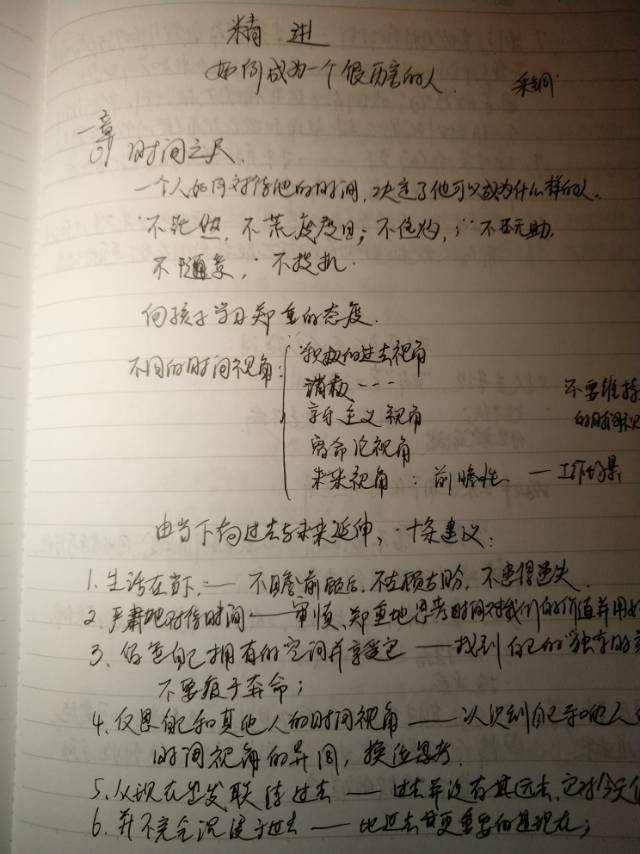 精进
如何成为一个很厉害的人 采铜
一章 01 时间之尺.
一个人如何对待他的时间,决定了他可以成为什么样的人.
不荒度度日;
不随意, 不投机.
向孩子学习郑重的态度.
不同的时间视角:
积极的过去视角
消极---
享乐主义视角
宿命论视角
未来视角:前瞻性. — 工作场景
不要维持
的时间视
由当下向过去与未来延伸, 十条建议:
1. 生活在当下, — 不瞻前顾后,不左顾右盼,不患得患失.
2. 严肃地对待时间 — 审慎、郑重地思考时间对我们的价值并用好
3. 自己拥有的空闲并享受它 — 找到自己的“独有的
不要疲于奔命;
4. 反思自己和其他人的时间视角 — 认识到自己和他人
时间视角的异同, 换位思考.
5. 从现在出发联结过去 — 过去并没有真远去,它对今天
6. 并不完全沉浸于过去 — 比过去更重要的是现在;